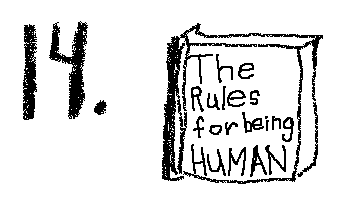 14.
The
Rules
for being
HUMAN